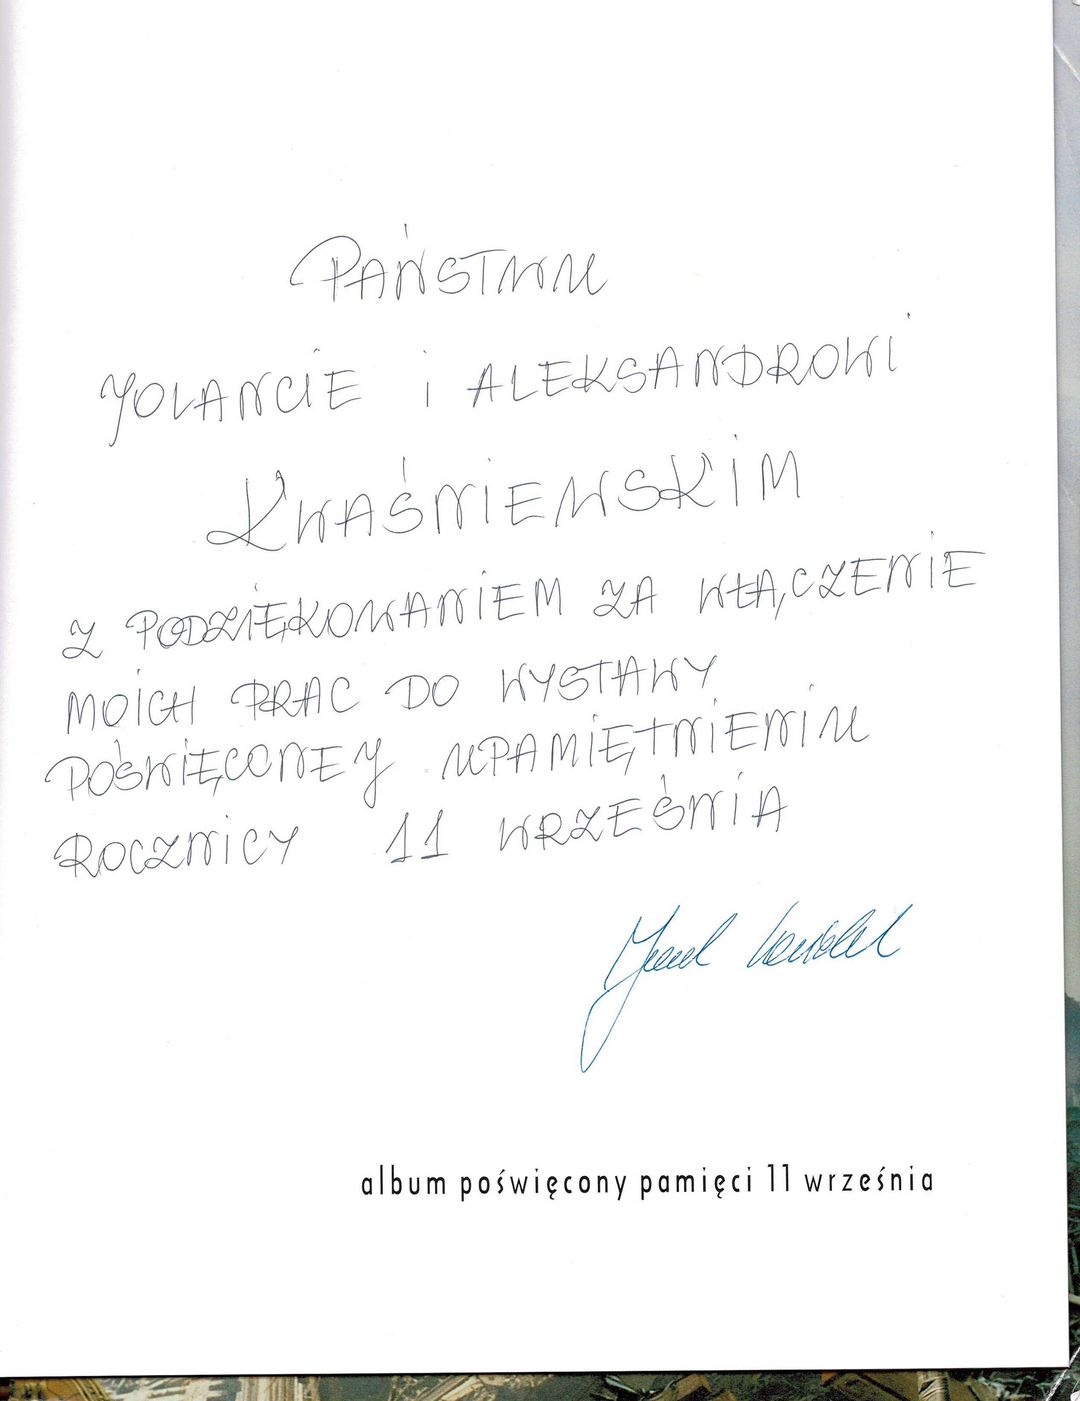 PAŃSTWU
JOLANCIE i ALEKSANDROWI
KWAŚNIEWSKIM
Z PODZIĘKOWANIEM ZA WŁĄCZENIE
MOICH PRAC DO WYSTAWY
POŚWIĘCONEJ UPAMIĘTNIENIU
ROCZNICY 11 WRZEŚNIA
album poświęcony pamięci 11 września